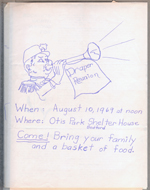 Draper
Reunion
When: August 10, 1969 at noon
Where: Otis Park Shelter House
Bedford
Come! Bring your family
and a basket of food.